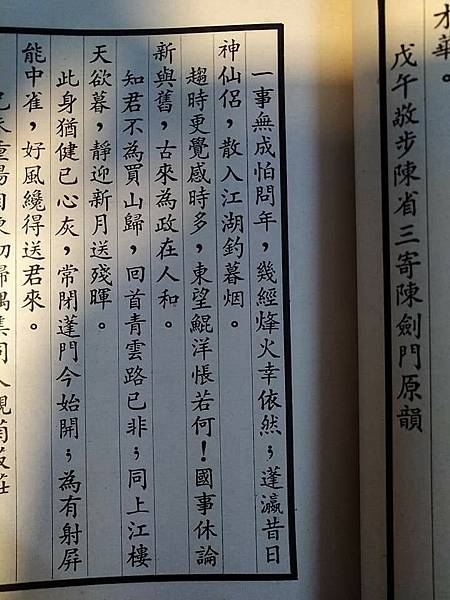 才華。
戊午敬步陳省三寄陳劍門原韻
一事無成怕問年，幾經烽火幸依然；蓬瀛昔日
神仙侶，散入江湖釣暮烟。
趨時更覺感時多，東望鯤洋悵若何！國事休論
新與舊，古來為政在人和。
知君不為買山歸，回首青雲路已非；同上江樓
天欲暮，靜迎新月送殘暉。
此身猶健已心灰，常閉蓬門今始開；為有射屏
能中雀，好風纔得送君來。
重陽
初歸偶集同人觀菊
莊